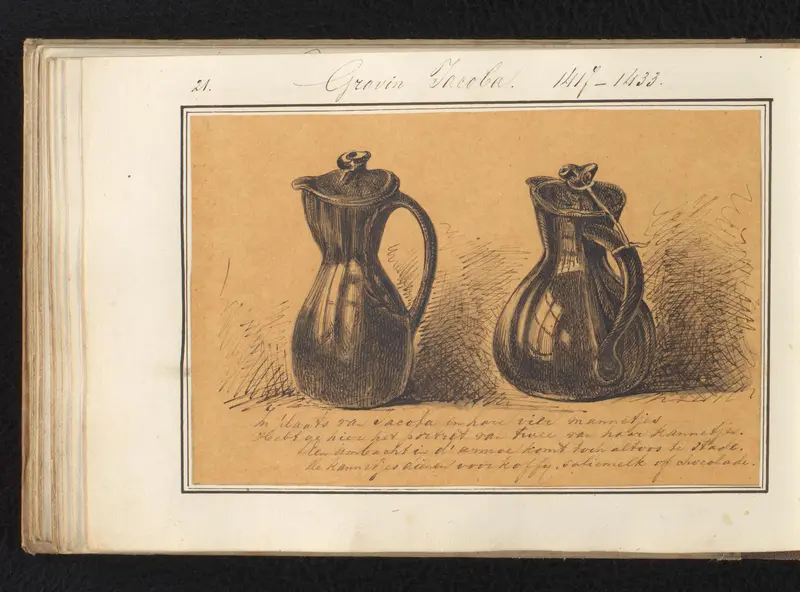 21. Gravin Jacoba. 1417 – 1433.
In plaats van Jacoba en hare vier mannetjes
Hebt gij hier het portret van twee van haar kannetjes.
Een ambacht in d'armoe komt toch altoos te stade,
De kannetjes dienen voor koffy, saliemelk of chocolade.